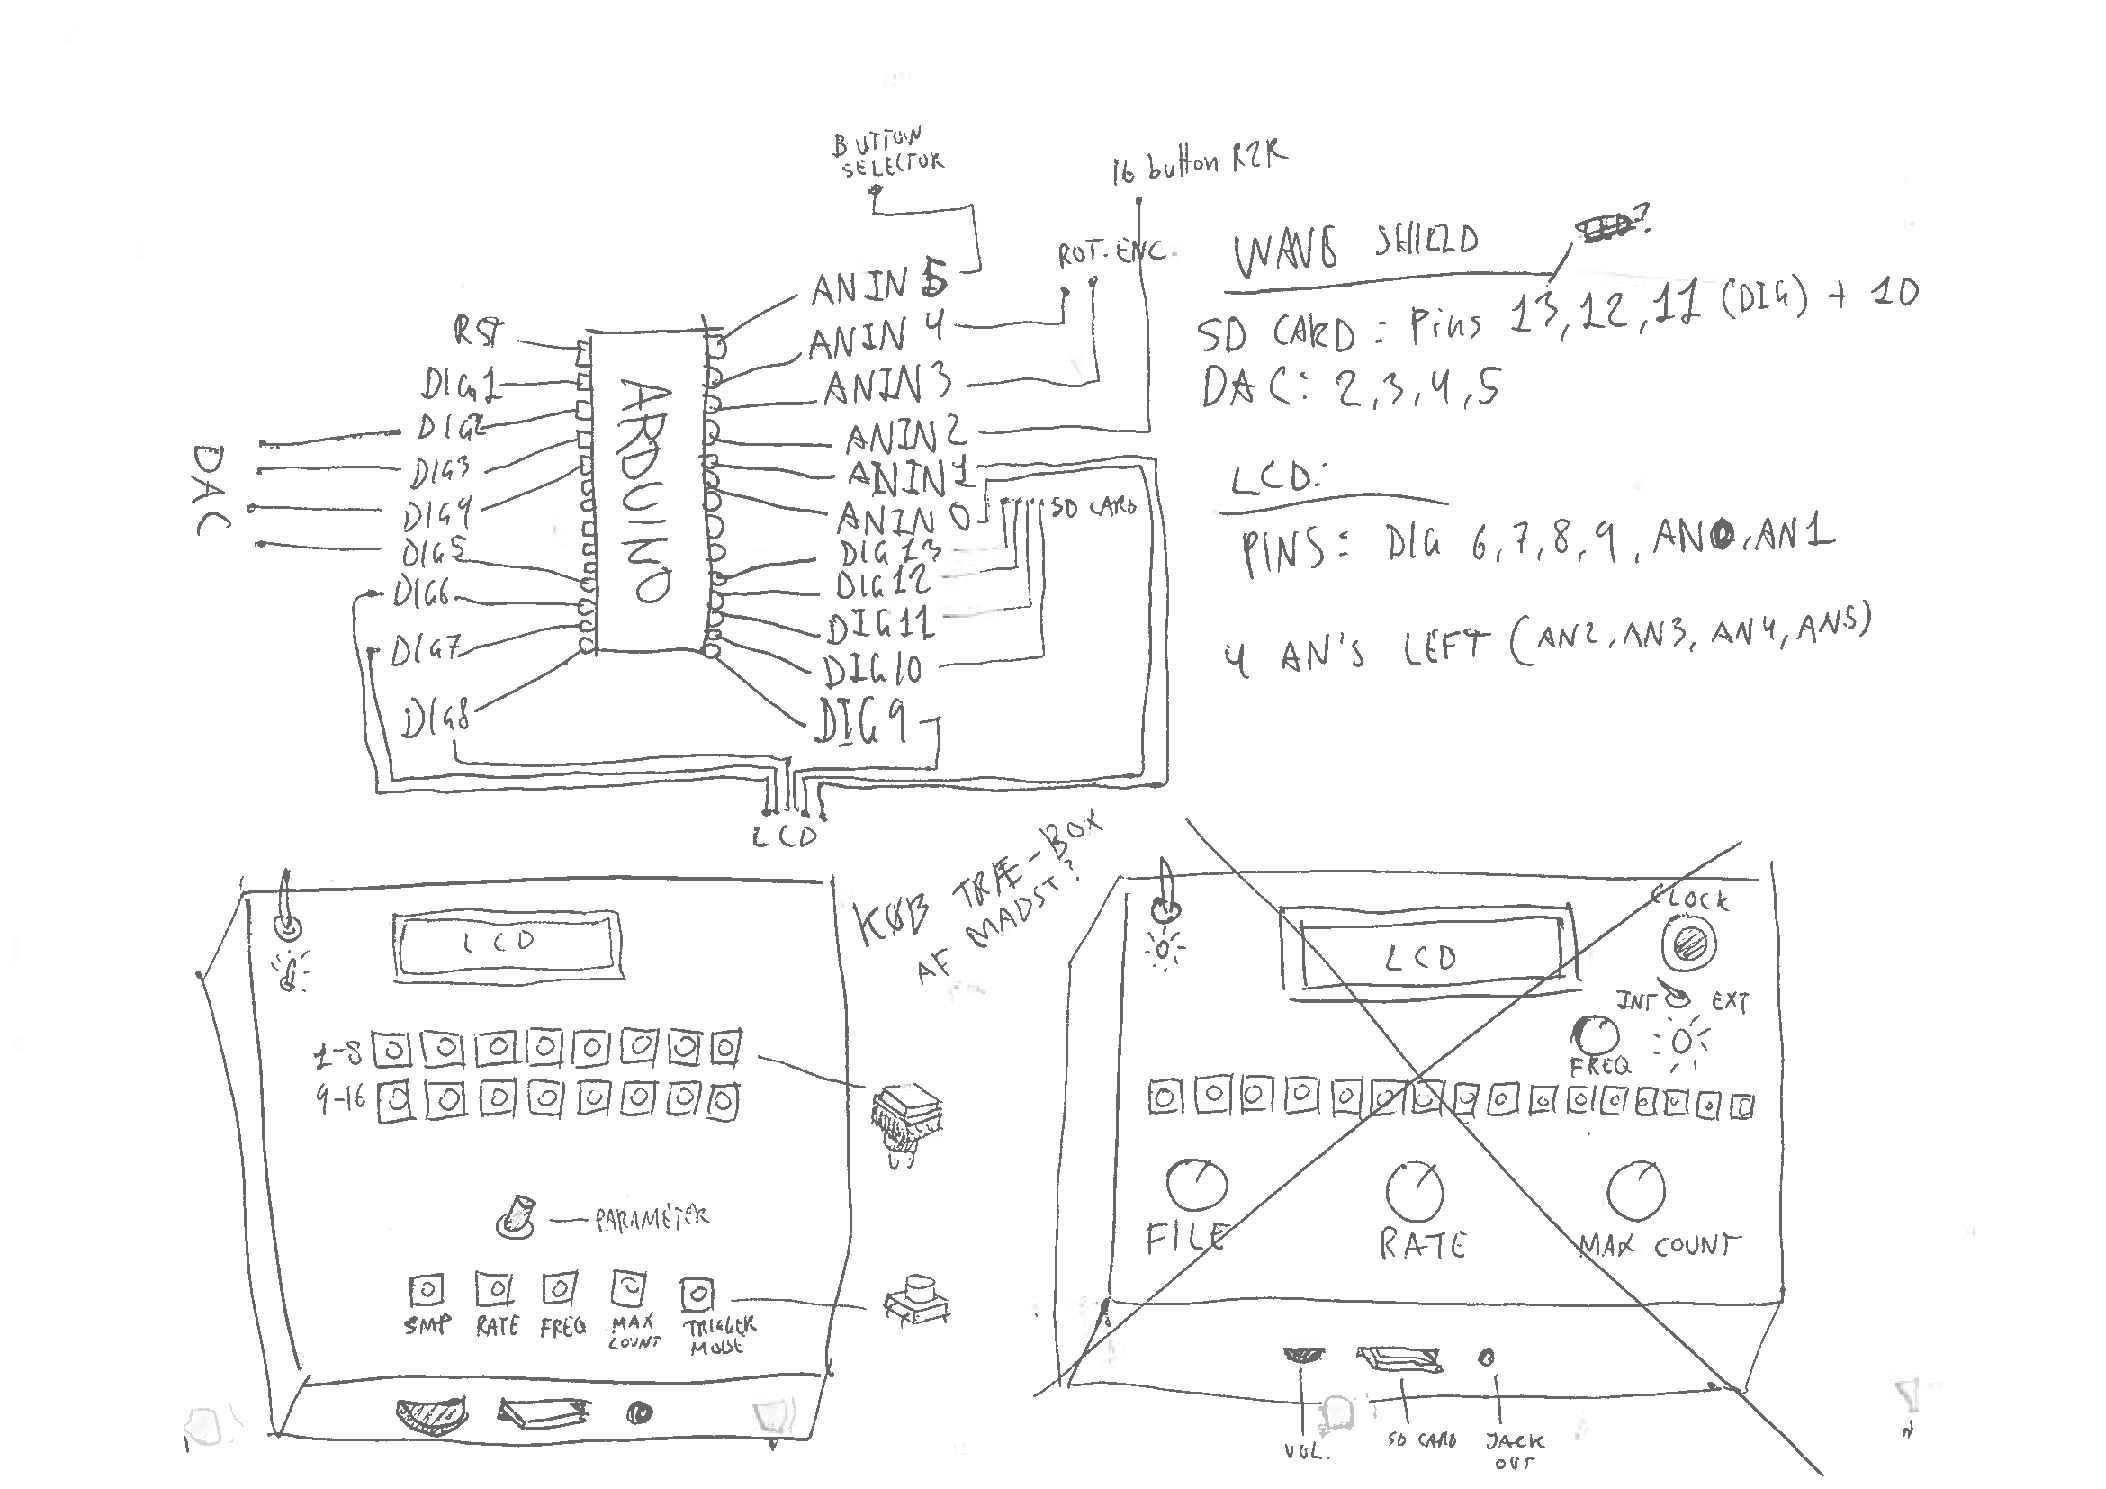 BUTTON
SELECTOR
16 button R2R
ROT. ENC.
AN IN 5
AN IN 4
ANIN 3
ANIN 2
ANIN 1
ANIN 0
DIG 13
DIG 12
DIG 11
DIG 10
DIG 9
SD CARD
RST
DIG1
DIG2
DIG3
DIG4
DIG5
DIG6
DIG7
DIG8
DAC
ARDUINO
LCD
WAVE SHIELD
?
SD CARD = Pins 13, 12, 11 (DIG) + 10
DAC: 2, 3, 4, 5
LCD:
PINS = DIG 6, 7, 8, 9, AN0, AN1
4 AN'S LEFT (AN2, AN3, AN4, AN5)
KØB TRÆ-BOX
AF MADST?
LCD
1-8
9-16
PARAMETER
SMP
RATE
FREQ
MAX
COUNT
TRIGGER
MODE
CLOCK
LCD
INT
EXT
FREQ
FILE
RATE
MAX COUNT
VOL.
SD CARD
JACK
OUT